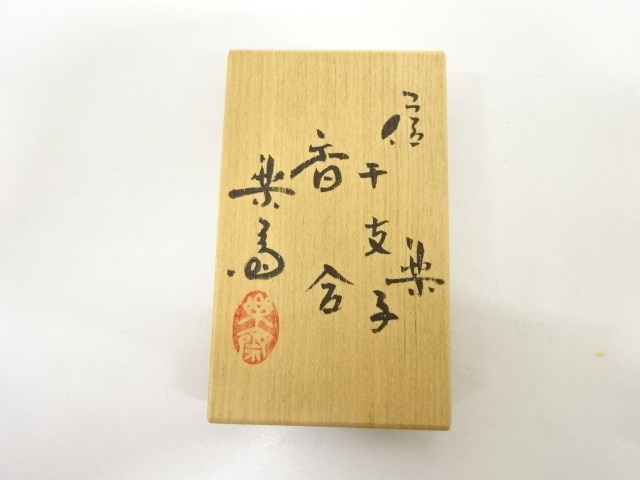 信楽
干支子
香合
楽斎
楽斎